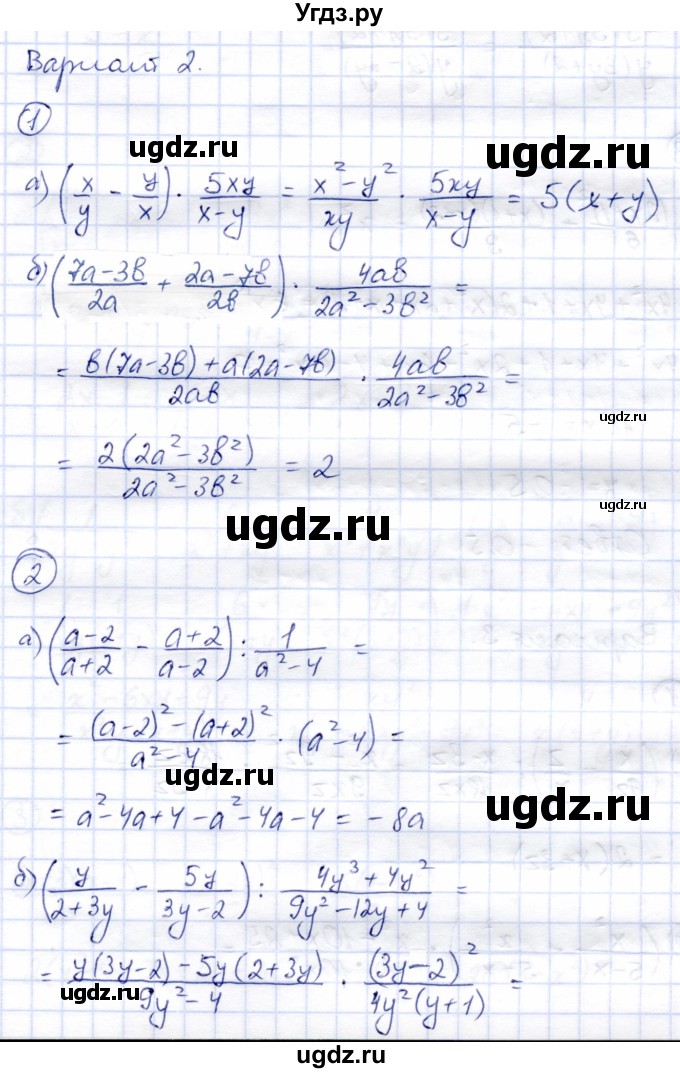 Угдз.ру
Вариант 2.
1
ugdz.ru ugdz.ru
а) (x/y - y/x) · 5xy/(x-y) = (x²-y²)/xy · 5xy/(x-y) = 5(x+y)
б) ((7a-3b)/2a + (2a-7b)/2b) · 4ab/(2a²-3b²) =
= (b(7a-3b)+a(2a-7b))/2ab · 4ab/(2a²-3b²) =
ugdz.ru
= 2(2a²-3b²)/(2a²-3b²) = 2
ugdz.ru
ugdz.ru
2
а) ((a-2)/(a+2) - (a+2)/(a-2)) : 1/(a²-4) =
= ((a-2)²-(a+2)²)/(a²-4) · (a²-4) =
ugdz.ru
ugdz.ru
= a²-4a+4-a²-4a-4 = -8a
б) (y/(2+3y) - 5y/(3y-2)) : (4y³+4y²)/(9y²-12y+4) =
= (y(3y-2)-5y(2+3y))/(9y²-4) · (3y-2)²/(4y²(y+1)) =
ugdz.ru ugdz.ru
ugdz.ru